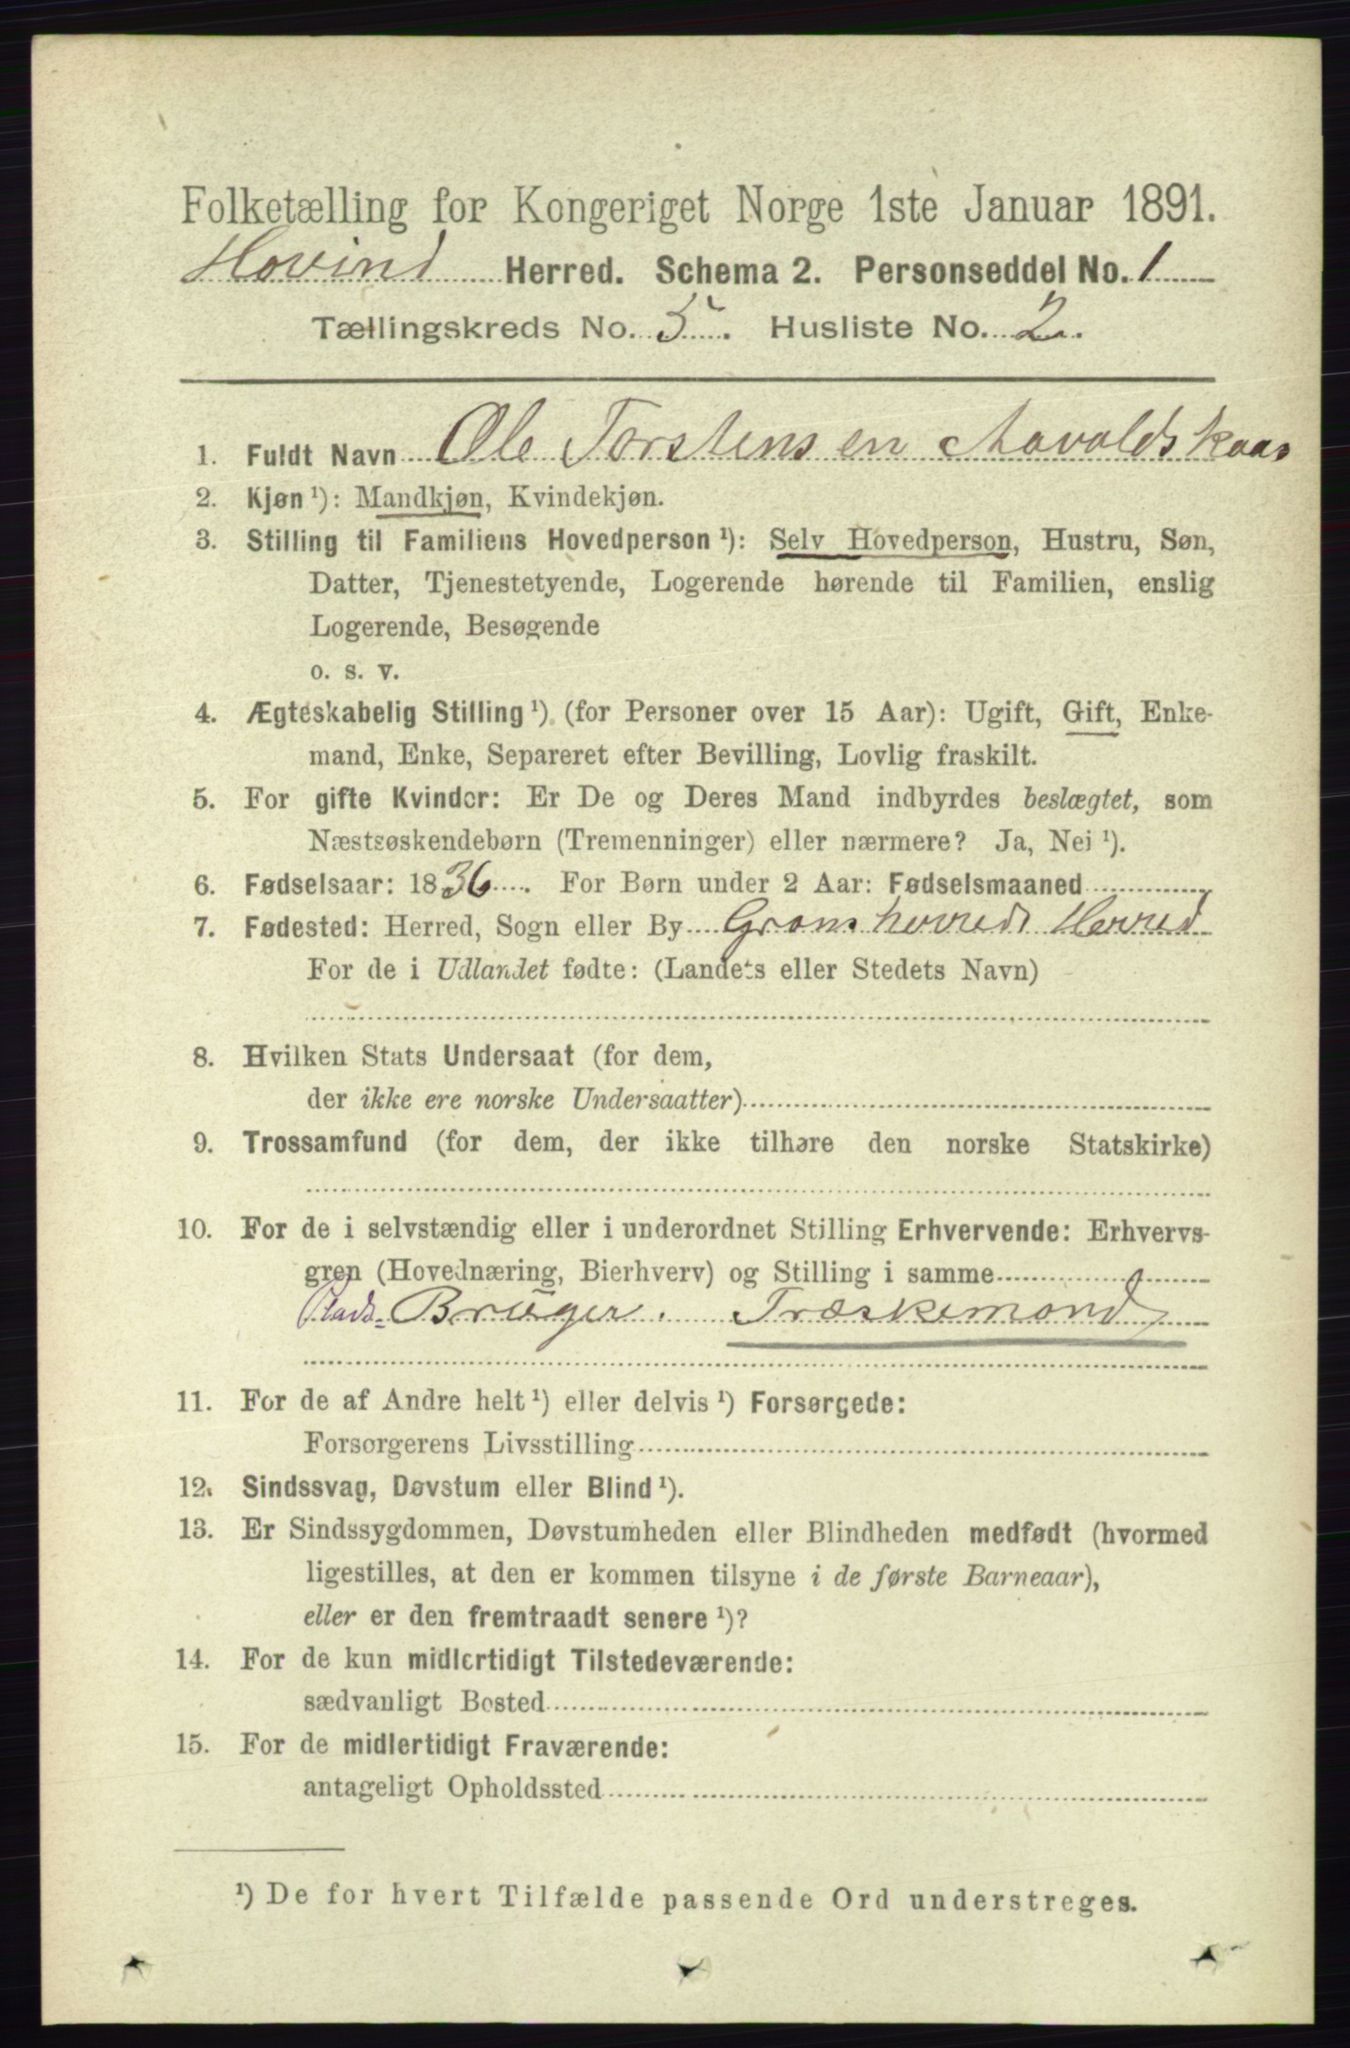 Folketælling for Kongeriget Norge 1ste Januar 1891.
Hovind Herred. Schema 2. Personseddel No. 1
Tællingskreds No. 5. Husliste No. 2.
1. Fuldt Navn Ole Torstensen
2. Kjøn ¹): Mandkjøn, Kvindekjøn.
3. Stilling til Familiens Hovedperson ¹): Selv Hovedperson, Hustru, Søn,
Datter, Tjenestetyende, Logerende hørende til Familien, enslig
Logerende, Besøgende
o. s. v.
4. Ægteskabelig Stilling ¹) (for Personer over 15 Aar): Ugift, Gift, Enke-
mand, Enke, Separeret efter Bevilling, Lovlig fraskilt.
5. For gifte Kvinder: Er De og Deres Mand indbyrdes beslægtet, som
Næstsøskendebørn (Tremenninger) eller nærmere? Ja, Nei ¹).
6. Fødselsaar: 1836. For Børn under 2 Aar: Fødselsmaaned
7. Fødested: Herred, Sogn eller By Gransherreds Herred
For de i Udlandet fødte: (Landets eller Stedets Navn)
8. Hvilken Stats Undersaat (for dem,
der ikke ere norske Undersaatter)
9. Trossamfund (for dem, der ikke tilhøre den norske Statskirke)
10. For de i selvstændig eller i underordnet Stilling Erhvervende: Erhvervs-
gren (Hovednæring, Bierhverv) og Stilling i samme
Plads- Brüger. Træskemand
11. For de af Andre helt ¹) eller delvis ¹) Forsørgede:
Forsørgerens Livsstilling
12. Sindssvag, Døvstum eller Blind ¹).
13. Er Sindssygdommen, Døvstumheden eller Blindheden medfødt (hvormed
ligestilles, at den er kommen tilsyne i de første Barneaar),
eller er den fremtraadt senere ¹)?
14. For de kun midlertidigt Tilstedeværende:
sædvanligt Bosted
15. For de midlertidigt Fraværende:
antageligt Opholdssted
¹) De for hvert Tilfælde passende Ord understreges.